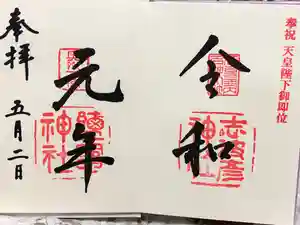 奉祝 天皇陛下御即位
令和
志波彦
神社
元年
鹽竈
神社
奉拝
五月二日